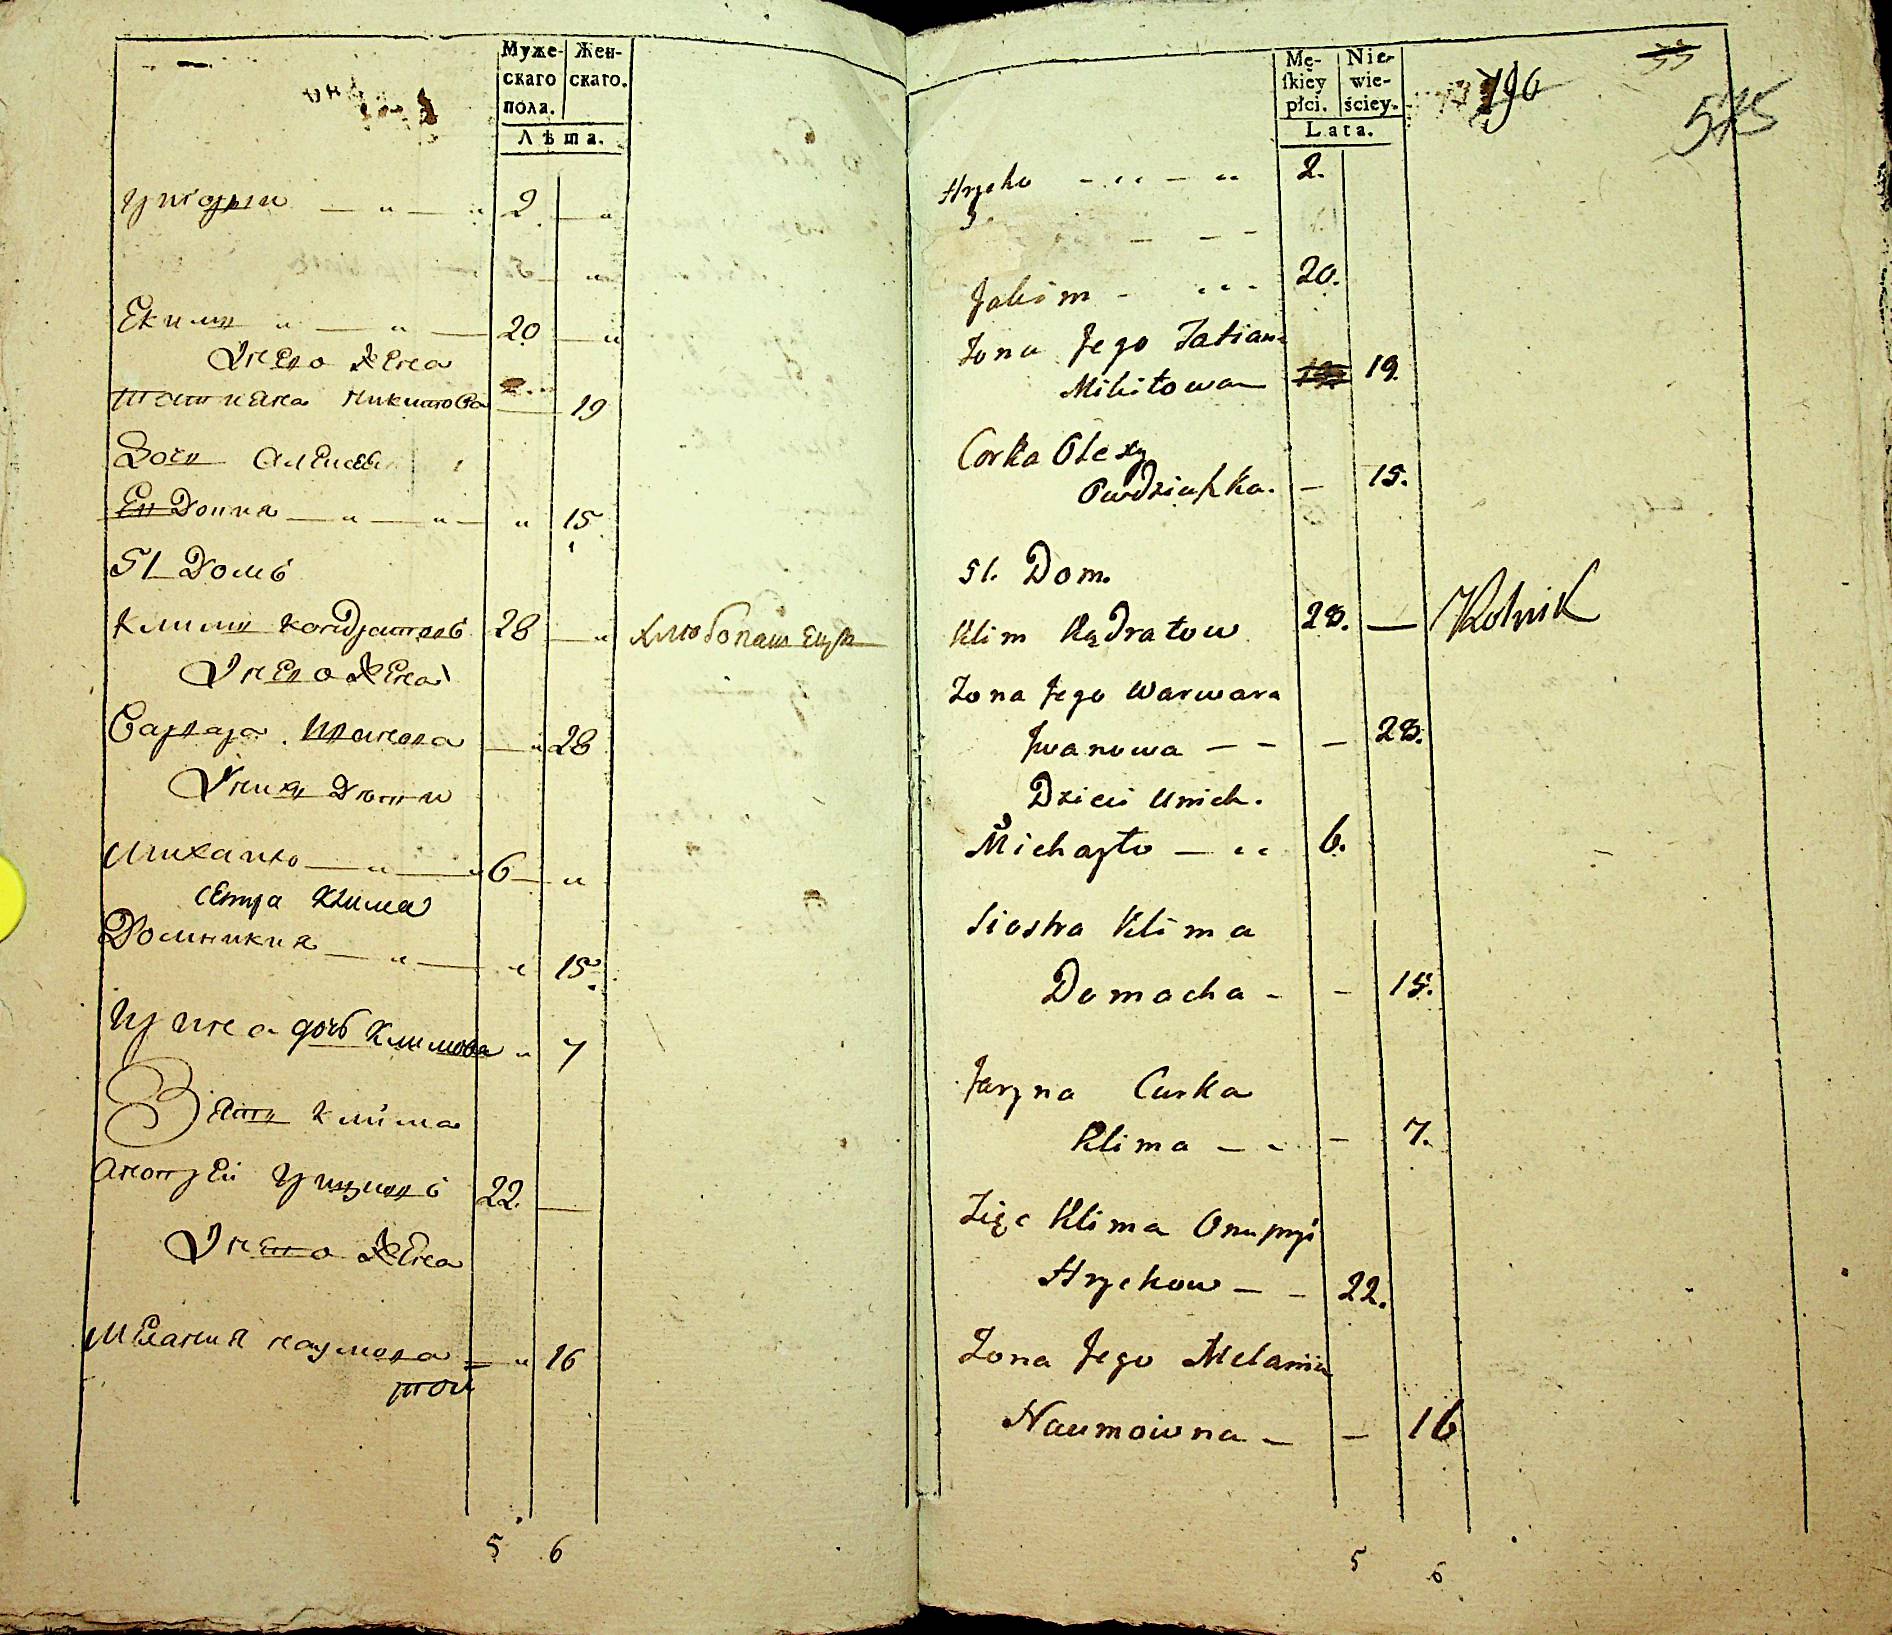 Муже-
скаго
пола.
Жен-
скаго.
Лѣта.
Григорий — " — " 2 — "
Екимъ " — " — 20 — "
У него жена
Татияна Никитова — 19
Дочь Алексея
Евдокия — " — " — " 15
51 Домъ
Климъ Кондратовъ 28 — " Хлебопашецъ
У него жена
Варвара Иванова — " 28
У них дети
Михайло — " — " 6 — "
Сестра Клима
Домникия — " — " 15.
Ирина дочь Климова " 7
Зять Клима
Анопрей Григоривъ 22. —
У него жена
Мелания Наумова — " 16
5 6
Mę-
ſkiey
płci.
Nie-
wie-
ściey.
Lata.
190
55
575
Hrycko - " - " 2.
Jakim - " - 20.
Żona Jego Tatiana
Mikitowa — 19.
Corka Olexy
Owdziuszka. — 15.
51. Dom.
Klim Kądratow 28. — Rolnik
Żona Jego Warwara
Jwanowa — — — 28.
Dzieci Unich.
Michayło — " 6.
Siostra Klima
Domacha - - 15.
Jaryna Curka
Klima — - — 7.
Zięc Klima Onuprys
Hryckow — - 22.
Żona Jego Melaniia
Naumowna — — 16
5 6